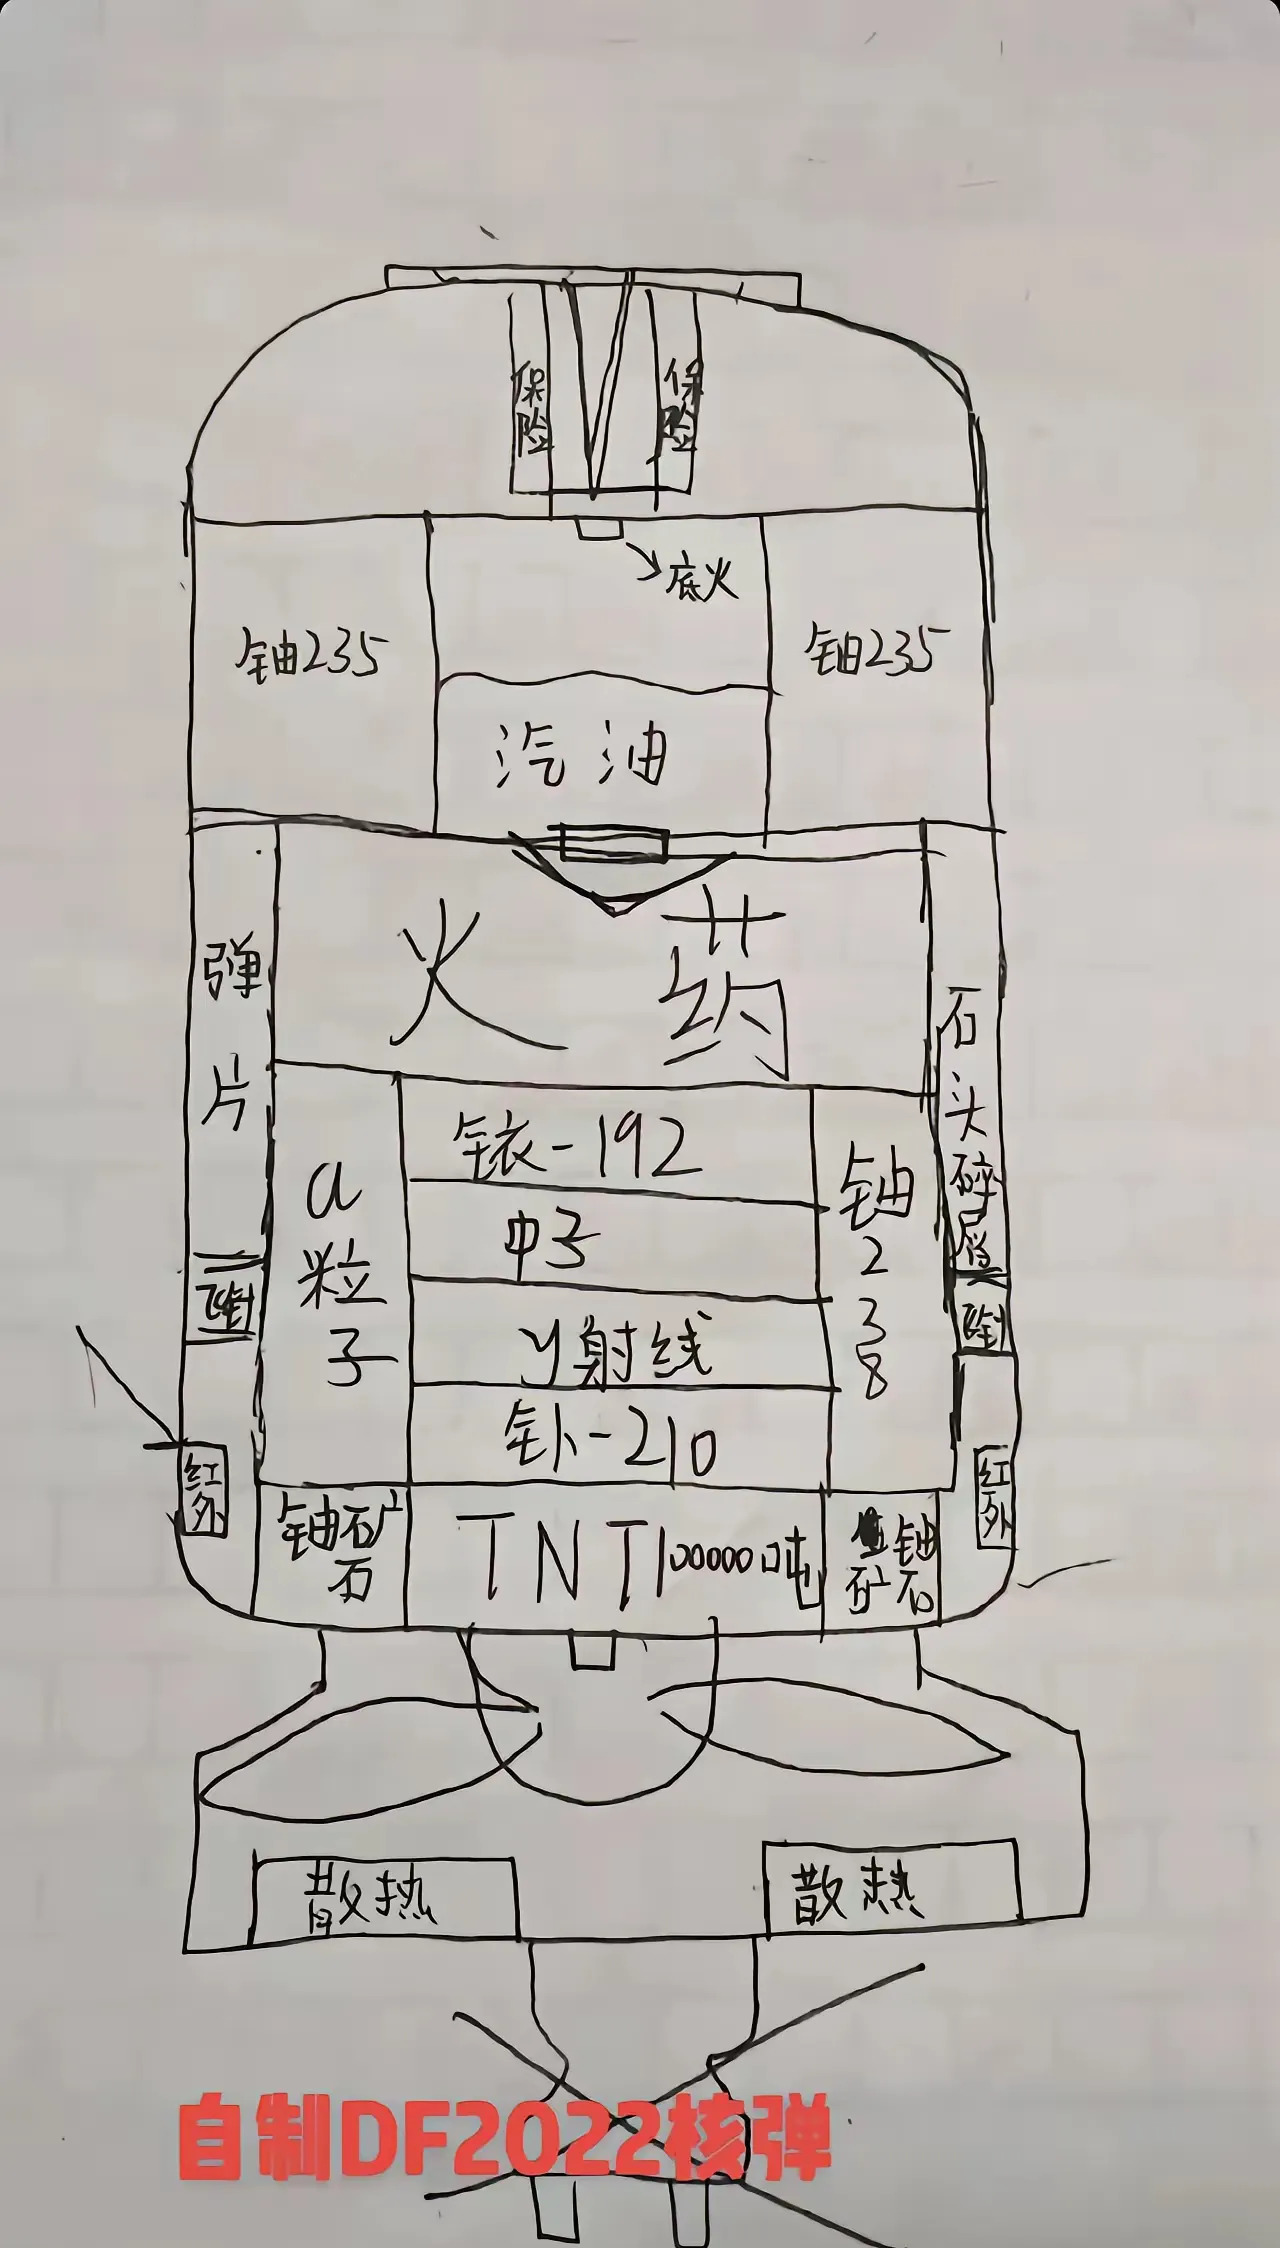 保险
保险
底火
铀235
铀235
汽油
火药
弹片
石头碎屑
α粒子
铱-192
中子
γ射线
钋-210
铀238
红外
红外
铀矿石
TNT100000吨
铀矿石
散热
散热
自制DF2022核弹